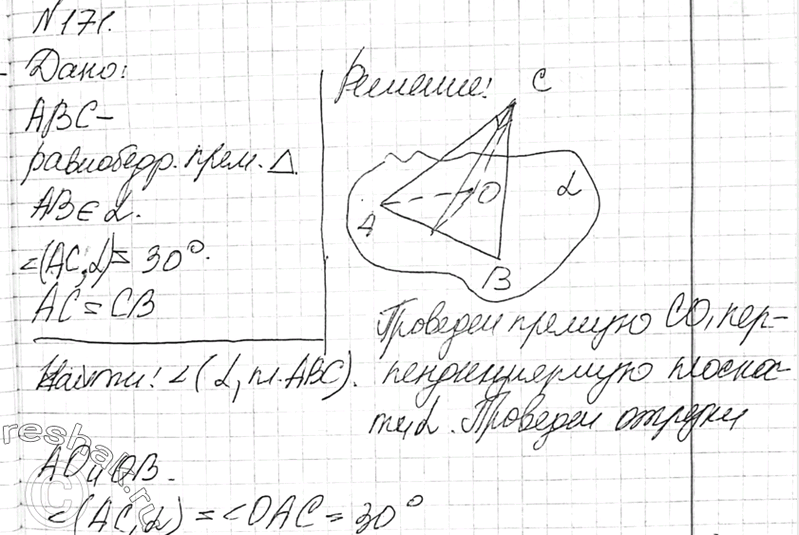 N 171.
Дано:
ABC –
равнобедр. прям. Δ.
AB ∈ α.
∠(AC, α) = 30°.
AC = CB
Найти: ∠(α, пл. ABC).
Решение:
C
O
α
A
B
Проведем прямую CO, пер-
пендикулярную плоскос-
ти α. Проведем отрезки
AO и OB.
∠(AC, α) = ∠OAC = 30°
reshak.ru
©